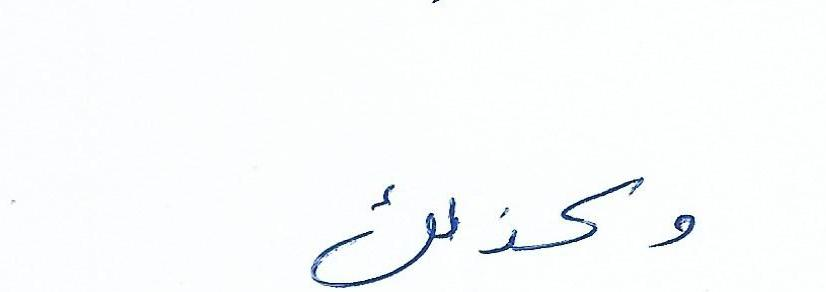 وكذلك